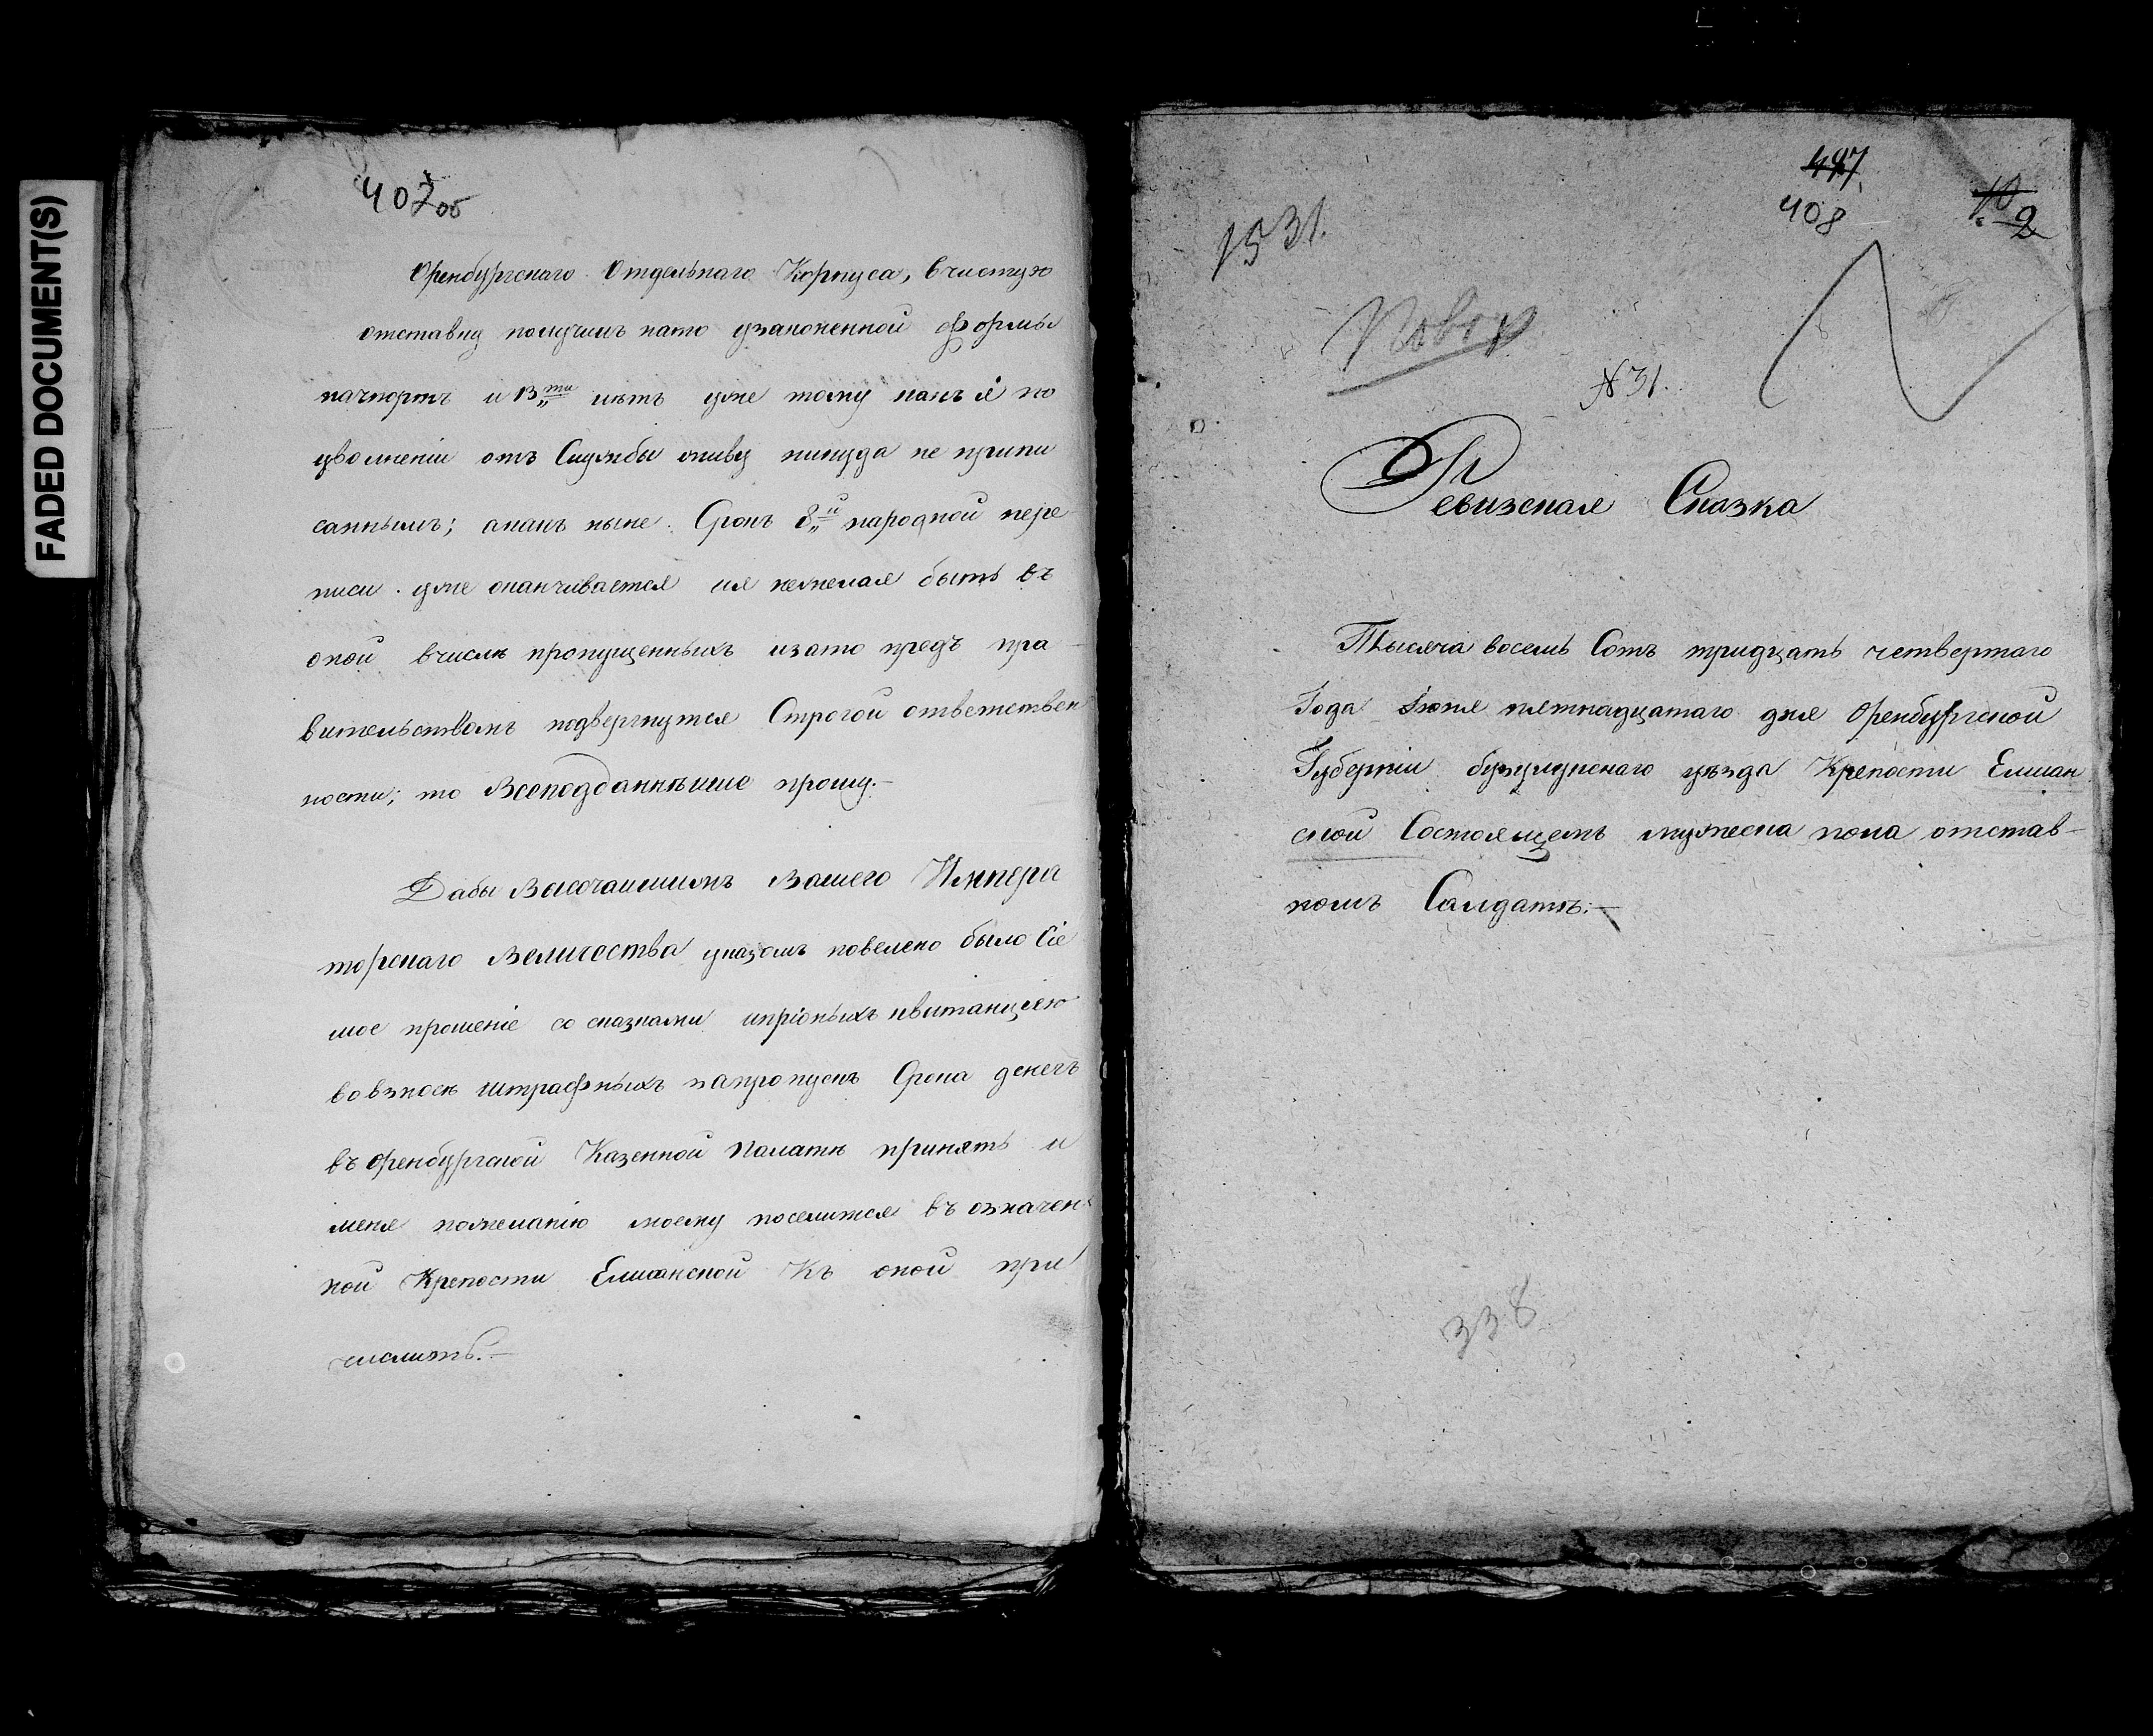 FADED DOCUMENT(S)
407об
Оренбургскаго Отдельнаго Корпуса, вчистую
отставку получилъ нато узаконенной формы
пачпортъ и 13ти летъ уже тому какъ я по
уволненіи отъ Службы живу никуда не припи
саннымъ; акакъ ныне Срокъ 8й народной пере
писи уже оканчивается ия нежелая быть въ
оной вчисле пропущенныхъ изато предъ пра
вительствомъ подвергнутся Строгой ответствен
ности; то Всеподданнѣише прошу.
Дабы Высочаишимъ Вашего Импера
торскаго Величества указомъ повелено было Сіе
мое прошеніе со сказками иприоныхъ квитанціею
вовзносе штрафныхъ запропускъ Срока денегъ
въ Оренбургской Казенной Палатѣ принять и
меня пожеланію моему поселится въ означен
ной Крепости Елшанской Къ оной при
числить.
1531.
447
408
10
2
Повер
№ 31.
Ревизская Сказка
Тысяча восемь Сотъ тридцать четвертаго
Года Іюня пятнадцатаго дня Оренбургской
Губерніи бузулукскаго уѣзда Крепости Елшан
ской Состоящемъ мужеска пола отстав
номъ Салдатѣ:
338